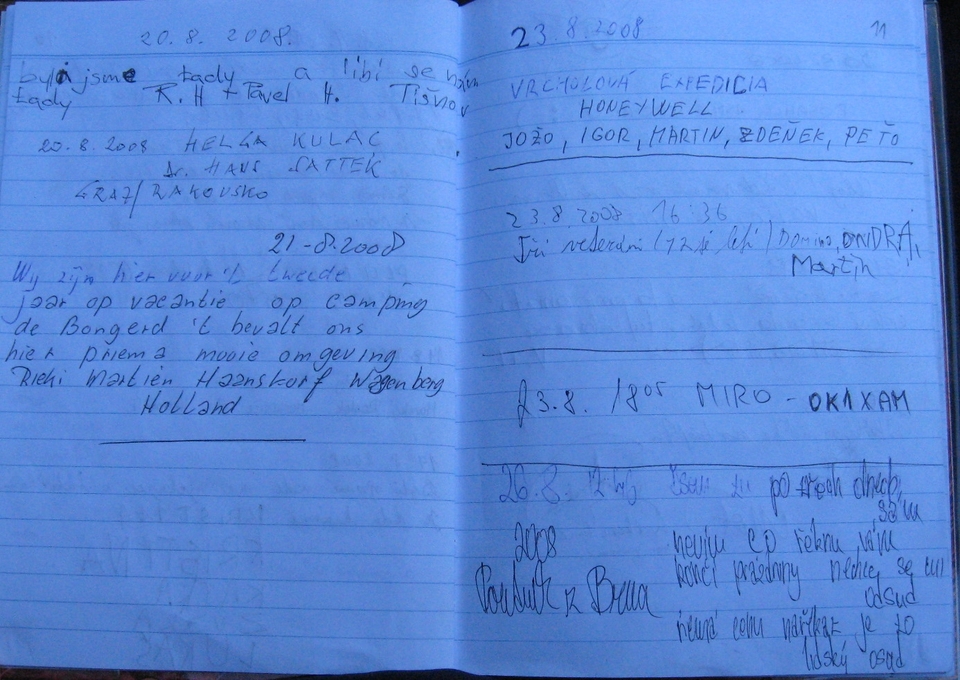 20. 8. 2008.
byli jsme tady a líbí se nám
tady R. H + Pavel H. Tišnov
20. 8. 2008 HELGA KULAC
Dr. HANS SATTEK
GRAZ / RAKOUSKO
21-8.2008
Wij zijn hier voor 't tweede
jaar op vacantie op camping
de Bongerd 't bevalt ons
hier priema mooie omgeving
Rieki Martien Haanskorf Wagenberg
Holland
23. 8. 2008 11
VRCHOLOVÁ EXPEDICIA
HONEYWELL
JOŽO, IGOR, MARTIN, ZDENĚK, PEŤO
23.8 2008 16:36
Tři veteráni / Domino, ONDRA,
Martin
23.8. 18⁰⁵ MIRO - OK1XAM
26.8. po třech dnech,
sám
2008 nevím co řeknu vám
končí prázdniny nechce se mi
odsud
z Brna
nemá cenu naříkat je to
lidský osud